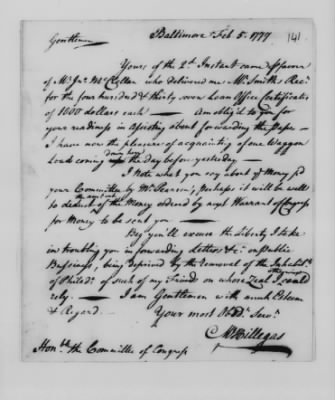 Baltimore Feb 5. 1777
141
Gentlemen
Yours of the 2d Instant came
of Mr. Jno. McClellan who delivered me Mr. Smiths Rec.t
for the four hundred & thirty seven Loan Office Certificates
of 1000 dollars each — am oblig'd to you for
your readiness in assisting about forwarding the Paper —
I have now the pleasure of acquainting of one Waggon
Load coming here the day before yesterday —
I Note what you say about ye Money p'd
your Committee by Mr. Pearson; perhaps it will be well
to deduct the amount of the Money ordered by next Warrant of Congress
for Money to be sent you —
Beg you'll excuse the liberty I take
in troubling you in forwarding Letters &c. on Public
Bussiness, being deprived by the removal of the Inhabit.ts
of Philad.a of such of my Friends on whose Zeal I could
rely. — I am Gentlemen with much Esteem
& Regard.
Your most Obd. Serv.
M Hillegas
Hon.ble the Committee of Congress